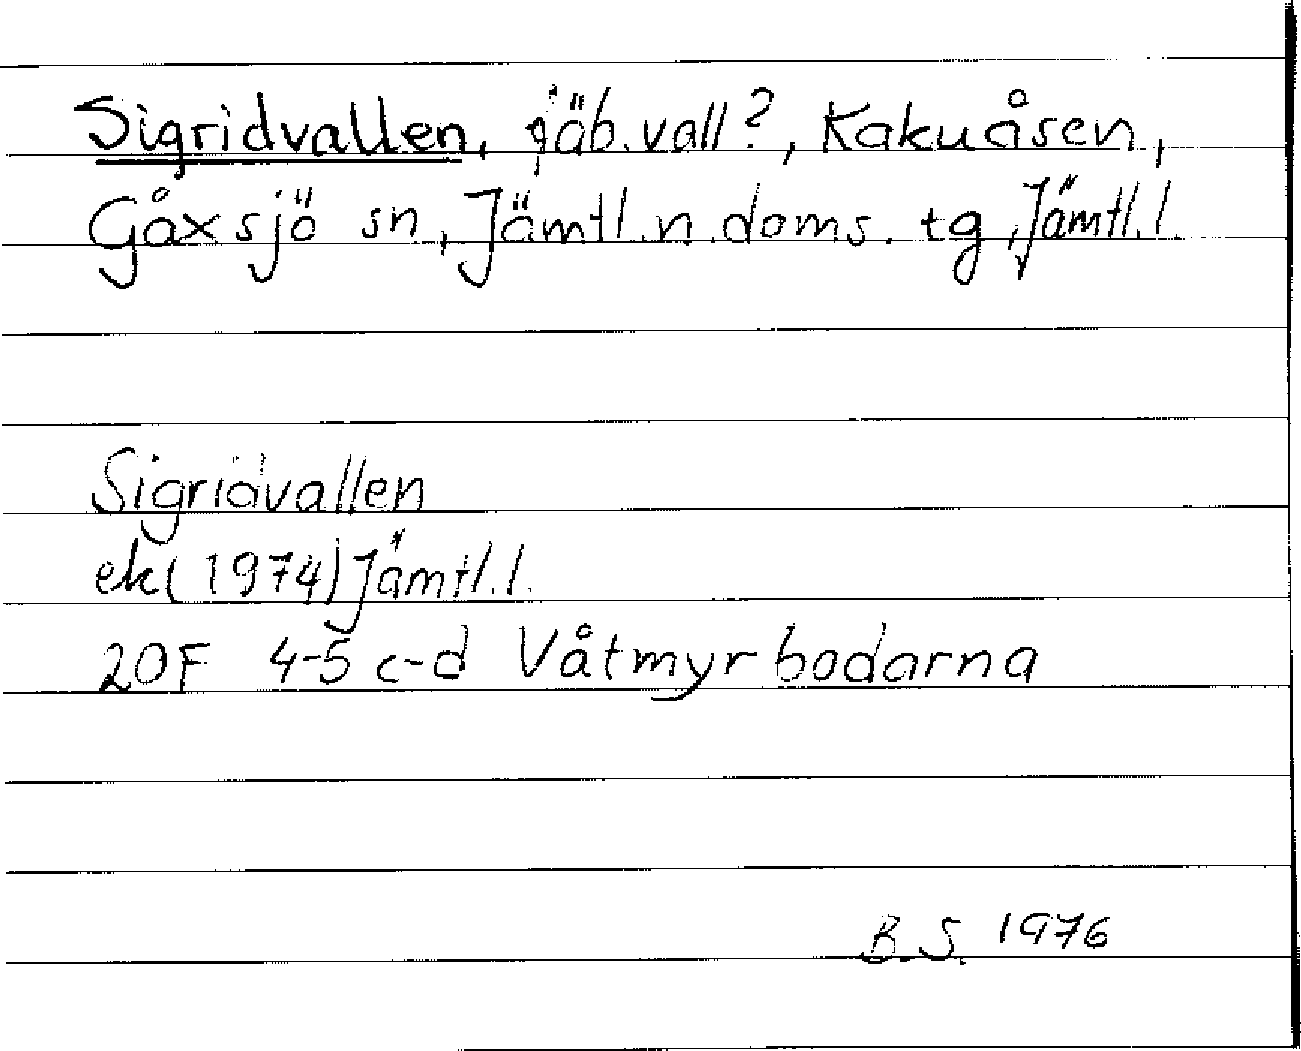 Sigridvallen, fäb.vall?, Kakuåsen,
Gåxsjö sn, Jämtl.n.doms.tg, Jämtl.l.
Sigridvallen
ek(1974) Jämtl.l.
20F 4-5 c-d Våtmyrbodarna
B.S. 1976